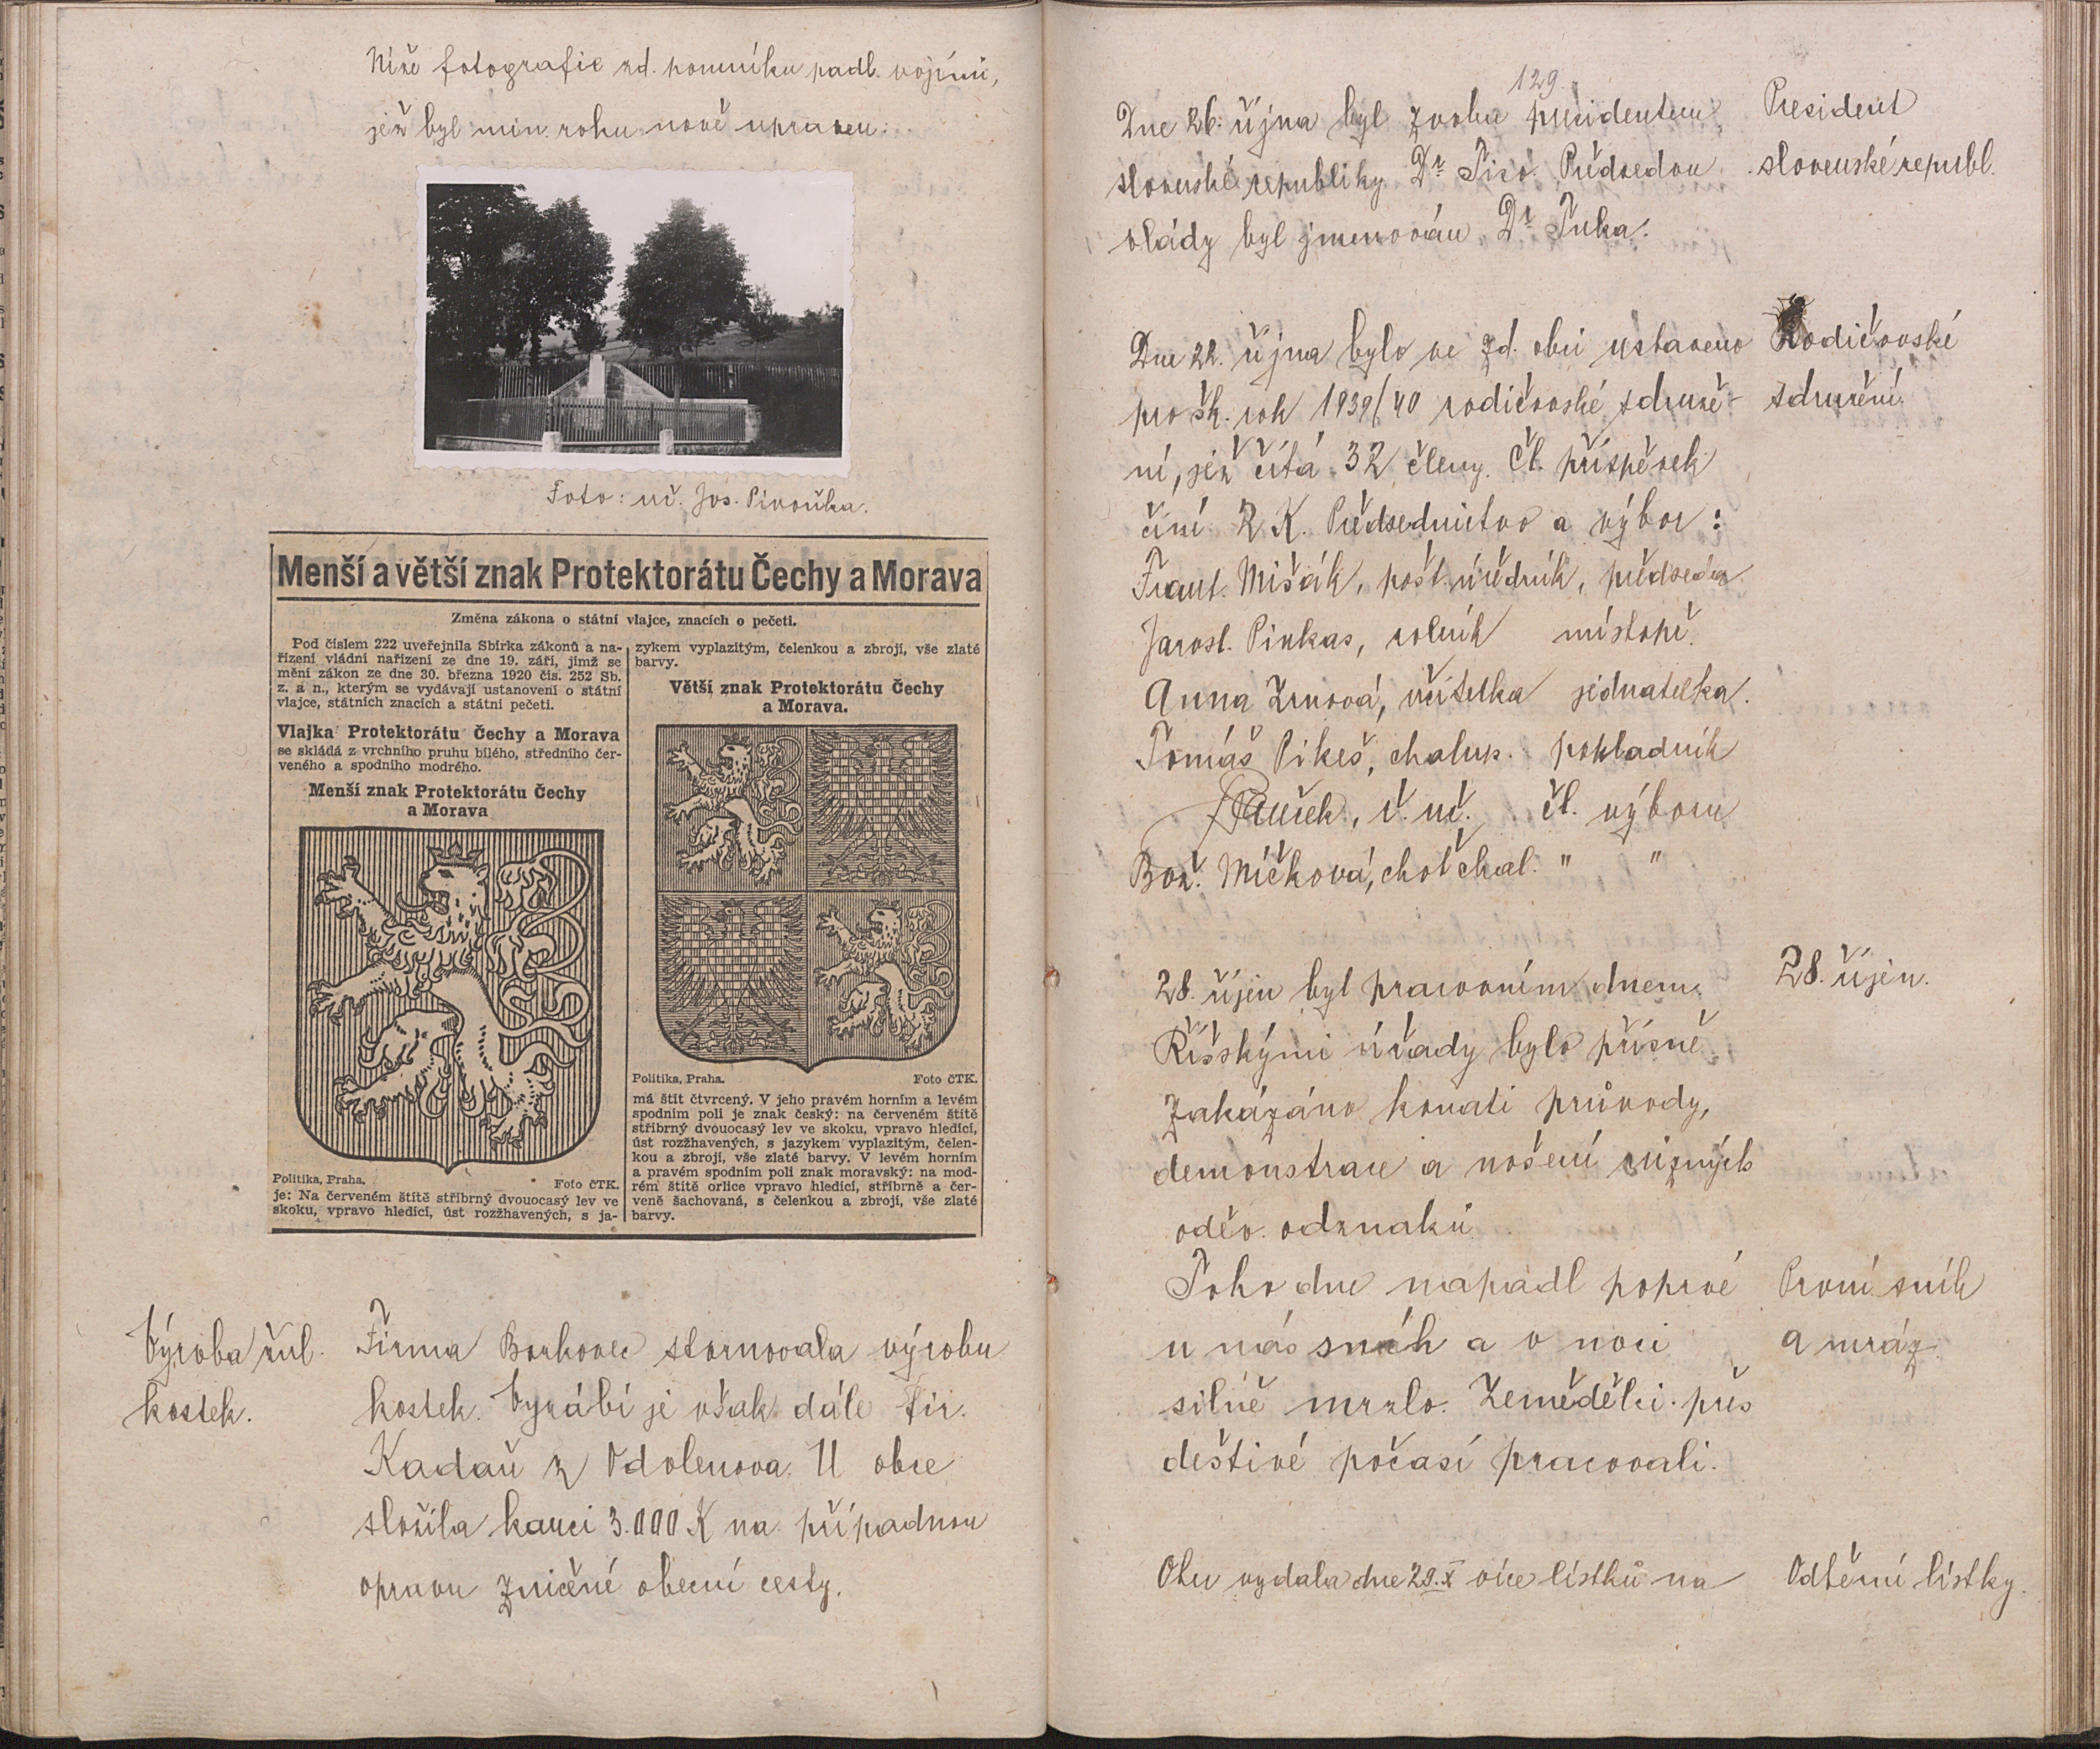 Níže fotografie zd. pomníku padl. vojínů,
jež byl min. roku nově upraven:
Foto: uč. Jos. Pivoňka.
Menší a větší znak Protektorátu Čechy a Morava
Změna zákona o státní vlajce, znacích o pečeti.
Pod číslem 222 uveřejnila Sbírka zákonů a na-
řízení vládní nařízení ze dne 19. září, jímž se
mění zákon ze dne 30. března 1920 čís. 252 Sb.
z. a n., kterým se vydávají ustanovení o státní
vlajce, státních znacích a státní pečeti.
Vlajka Protektorátu Čechy a Morava
se skládá z vrchního pruhu bílého, středního čer-
veného a spodního modrého.
Menší znak Protektorátu Čechy
a Morava
Politika, Praha. Foto ČTK.
je: Na červeném štítě stříbrný dvouocasý lev ve
skoku, vpravo hledící, úst rozžhavených, s ja-
zykem vyplazitým, čelenkou a zbrojí, vše zlaté
barvy.
Větší znak Protektorátu Čechy
a Morava.
Politika, Praha. Foto ČTK.
má štít čtvrcený. V jeho pravém horním a levém
spodním poli je znak český: na červeném štítě
stříbrný dvouocasý lev ve skoku, vpravo hledící,
úst rozžhavených, s jazykem vyplazitým, čelen-
kou a zbrojí, vše zlaté barvy. V levém horním
a pravém spodním poli znak moravský: na mod-
rém štítě orlice vpravo hledící, stříbrně a čer-
veně šachovaná, s čelenkou a zbrojí, vše zlaté
barvy.
Výroba žul.
kostek.
Firma Borkovec stornovala výrobu
kostek. Vyrábí je však dále fir.
Kadaň z Odolenova. U obce
složila kauci 3.000 K na případnou
opravu zničené obecní cesty.
129.
Dne 26. října byl zvolen presidentem
slovenské republiky Dr Tiso. Předsedou
vlády byl jmenován Dr Tuka.
President
slovenské republ.
Dne 22. října bylo ve zd. obci ustaveno
pro šk. rok 1939/40 rodičovské sdruže-
ní, jež čítá 32 členy. Čl. příspěvek
činí 2 K. Předsednictvo a výbor:
Rodičovské
sdružení.
Frant. Mišák, pošt. úředník, předseda
Jarosl. Pinkas, rolník místopř.
Anna Zrnová, učitelka jednatelka.
Tomáš Pikeš, chalup. pokladník
ř. uč. čl. výboru
Bož. Míčková, choť chal. " "
28. říjen byl pracovním dnem.
Říšskými úřady bylo přísně
zakázáno konati průvody,
demonstrace a nošení různých
oděv. odznaků.
28. říjen.
Toho dne napadl poprvé
u nás sníh a v noci
silně mrzlo. Zemědělci přes
deštivé počasí pracovali.
První sníh
a mráz.
Obec vydala dne 29.X více lístků na
Odběrní lístky.